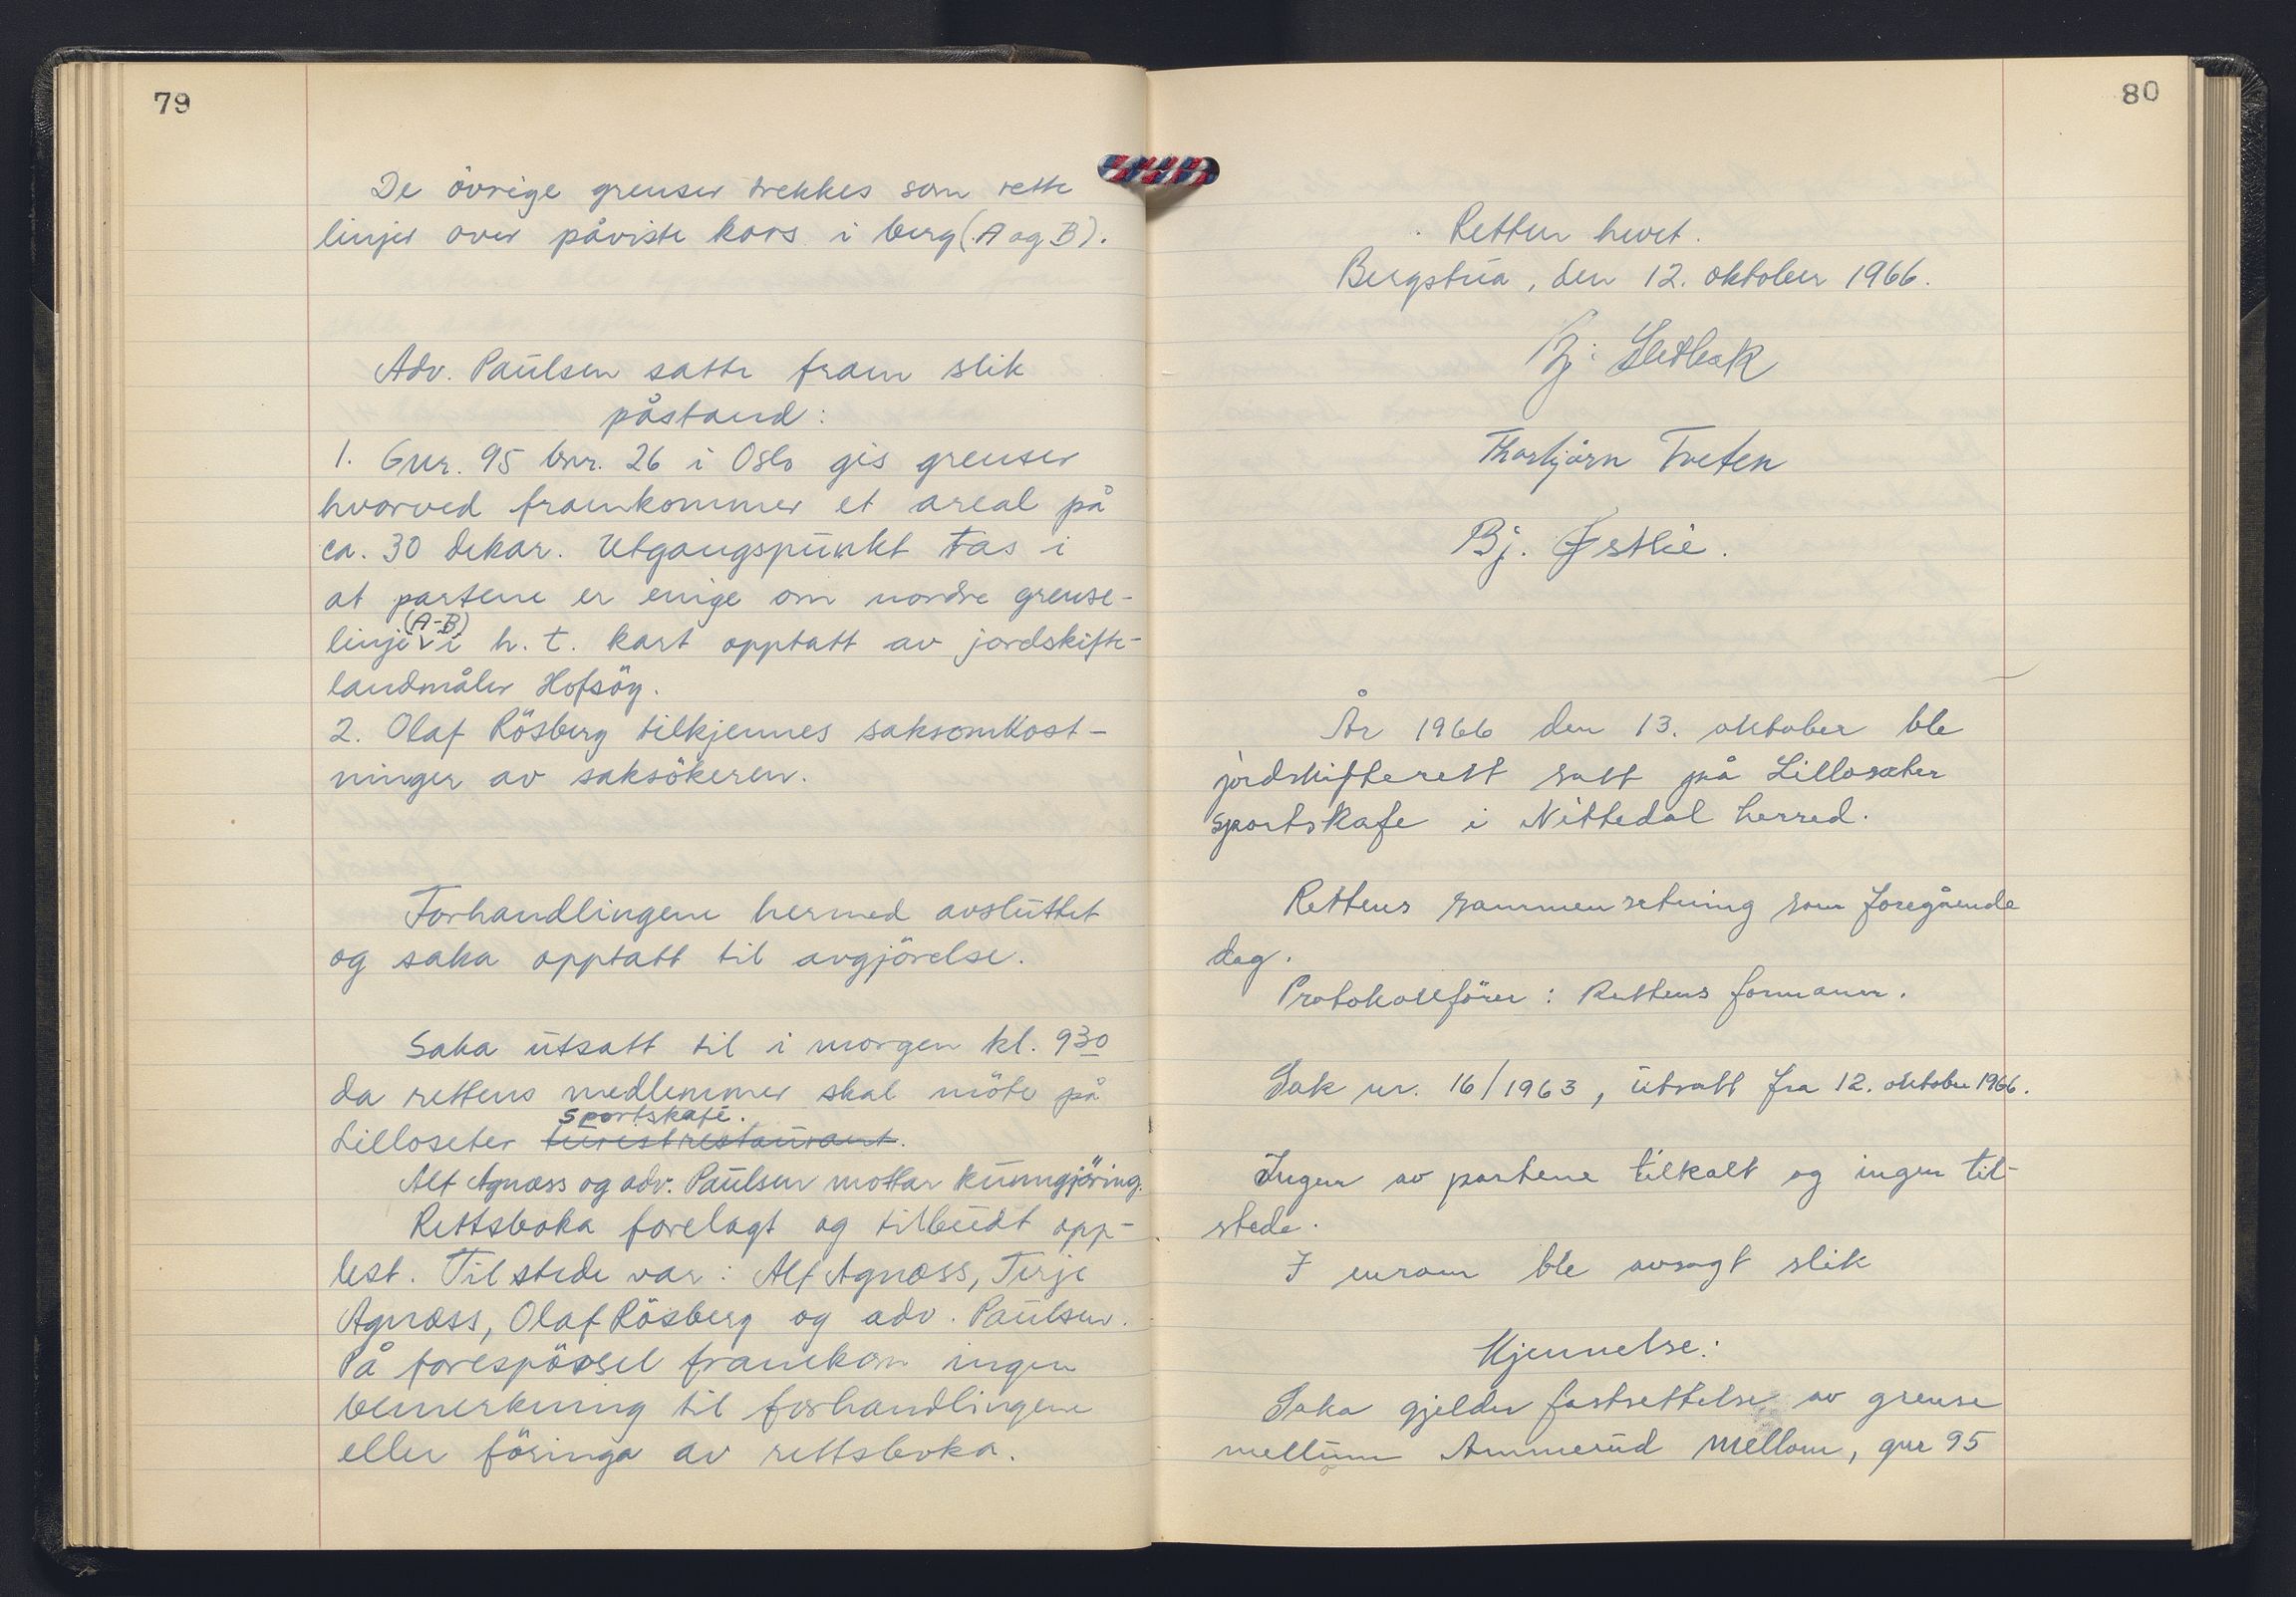 79
De övrige grenser trekkes som rette
linjer over påviste kors i berg (A og B).
Adv. Paulsen satte fram slik
påstand:
1. Gnr. 95 bnr. 26 i Oslo gis grenser
hvorved framkommer et areal på
ca. 30 dekar. Utgangspunkt tas i
at partene er enige om nordre grense-
(A-B)
linje i h. t. kart opptatt av jordskifte-
landmåler Hofsöy.
2. Olaf Rösberg tilkjennes saksomkost-
ninger av saksökeren.
Forhandlingene hermed avsluttet
og saka opptatt til avgjörelse.
Saka utsatt til i morgen kl. 9 30
da rettens medlemmer skal möte på
sportskafé.
Lilloseter turistrestaurant.
Alf Agnæss og adv. Paulsen mottar kunngjöring.
Rettsboka forelagt og tilbudt opp-
lest. Til stede var: Alf Agnæss, Terje
Agnæss, Olaf Rösberg og adv. Paulsen.
På forespörsel framkom ingen
bemerkning til forhandlingene
eller föringa av rettsboka.
80
Retten hevet.
Bergstua, den 12. oktober 1966.
Thorbjørn Tveten
Bj. Østlie.
År 1966 den 13. oktober ble
jordskifterett satt på Lillosæter
sportskafe i Nittedal herred.
Rettens sammensetning som foregående
dag.
Protokollförer: Rettens formann.
Sak nr. 16/1963, utsatt fra 12. oktober 1966.
Ingen av partene tilkalt og ingen til-
stede.
I enrom ble avsagt slik
Kjennelse:
Saka gjelder fastsettelse av grense
mellom Ammerud mellom, gnr 95